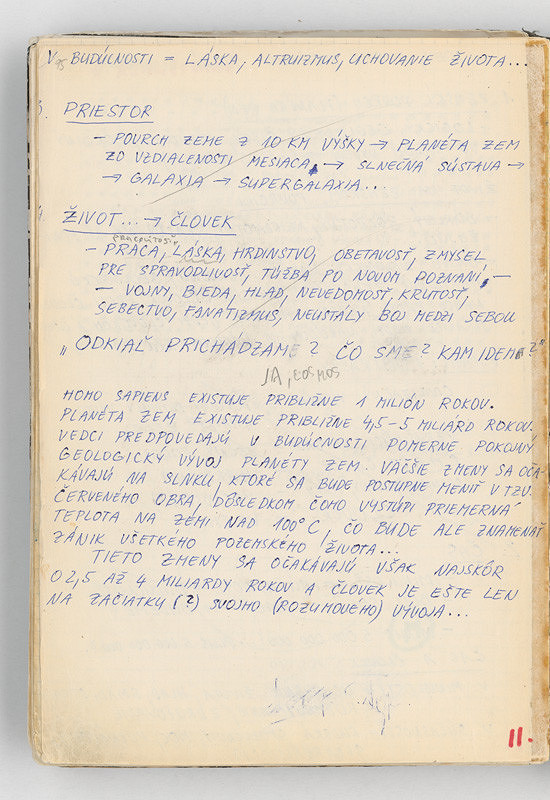 V BUDÚCNOSTI = LÁSKA, ALTRUIZMUS, UCHOVANIE ŽIVOTA...
3. PRIESTOR
– POVRCH ZEME Z 10 KM VÝŠKY → PLANÉTA ZEM
ZO VZDIALENOSTI MESIACA, → SLNEČNÁ SÚSTAVA →
→ GALAXIA → SUPERGALAXIA...
ŽIVOT... → ČLOVEK
PRACOVITOSŤ
– PRÁCA, LÁSKA, HRDINSTVO, OBETAVOSŤ, ZMYSEL
PRE SPRAVODLIVOSŤ, TÚŽBA PO NOVOM POZNANÍ, –
– VOJNY, BIEDA, HLAD, NEVEDOMOSŤ, KRUTOSŤ,
SEBECTVO, FANATIZMUS, NEUSTÁLY BOJ MEDZI SEBOU
„ODKIAĽ PRICHÁDZAME? ČO SME? KAM IDEME?"
JA, COSMOS
HOMO SAPIENS EXISTUJE PRIBLIŽNE 1 MILIÓN ROKOV.
PLANÉTA ZEM EXISTUJE PRIBLIŽNE 4,5–5 MILIÁRD ROKOV.
VEDCI PREDPOVEDAJÚ V BUDÚCNOSTI POMERNE POKOJNÝ
GEOLOGICKÝ VÝVOJ PLANÉTY ZEM. VÄČŠIE ZMENY SA OČA-
KÁVAJÚ NA SLNKU, KTORÉ SA BUDE POSTUPNE MENIŤ V TZV.
ČERVENÉHO OBRA, DÔSLEDKOM ČOHO VYSTÚPI PRIEMERNÁ
TEPLOTA NA ZEMI NAD 100°C, ČO BUDE ALE ZNAMENAŤ
ZÁNIK VŠETKÉHO POZEMSKÉHO ŽIVOTA...
TIETO ZMENY SA OČAKÁVAJÚ VŠAK NAJSKÔR
O 2,5 AŽ 4 MILIARDY ROKOV A ČLOVEK JE EŠTE LEN
NA ZAČIATKU (?) SVOJHO (ROZUMOVÉHO) VÝVOJA...
11.